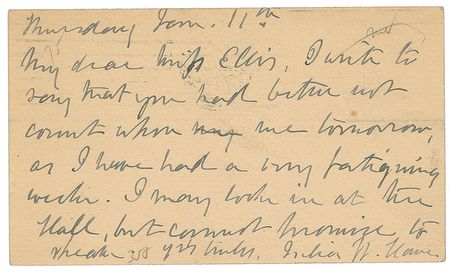 Thursday Jan. 11th
My dear Miss Ellis, I write to
say that you had better not
count upon my me tomorrow,
as I have had a very fatiguing
week. I may look in at the
Hall, but cannot promise to
speak 358 yrs truly, Julia W. Howe